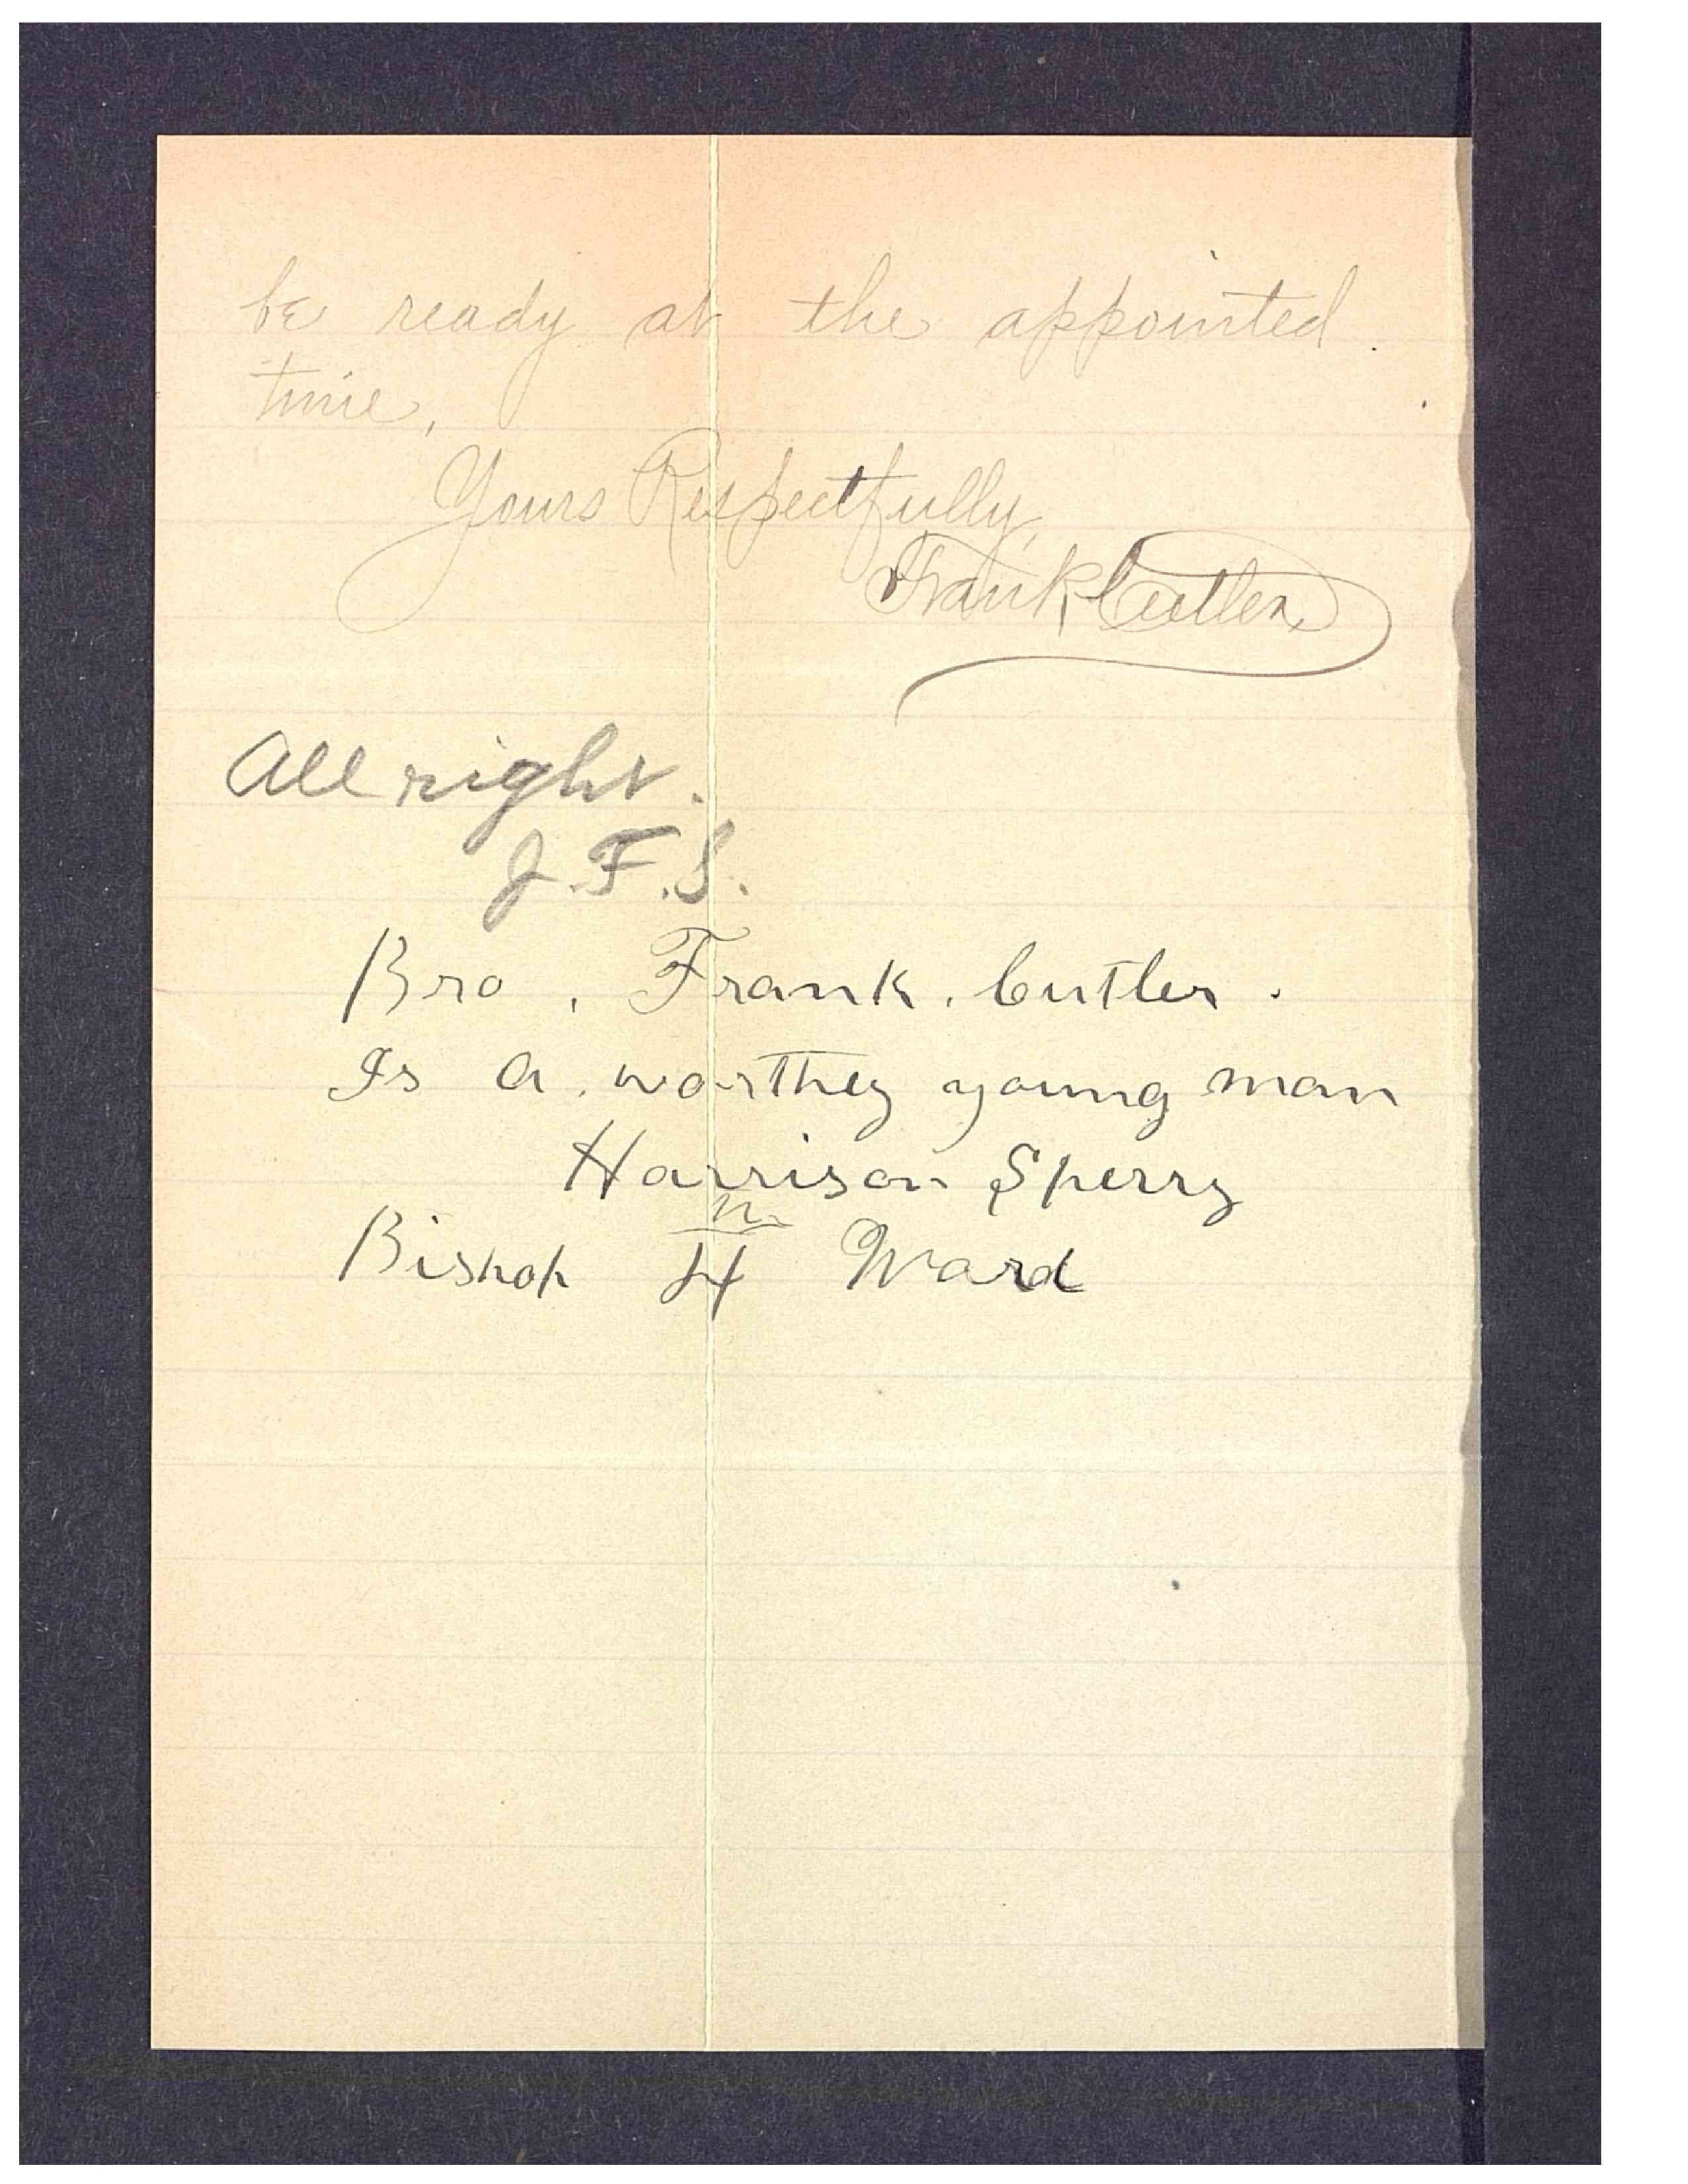 be ready at the appointed
time,
Yours Respectfully,
Frank Cutler
All right.
J. F. S.
Bro. Frank. Cutler.
Is a worthey young man
Harrison Sperry
Bishop 4th Ward